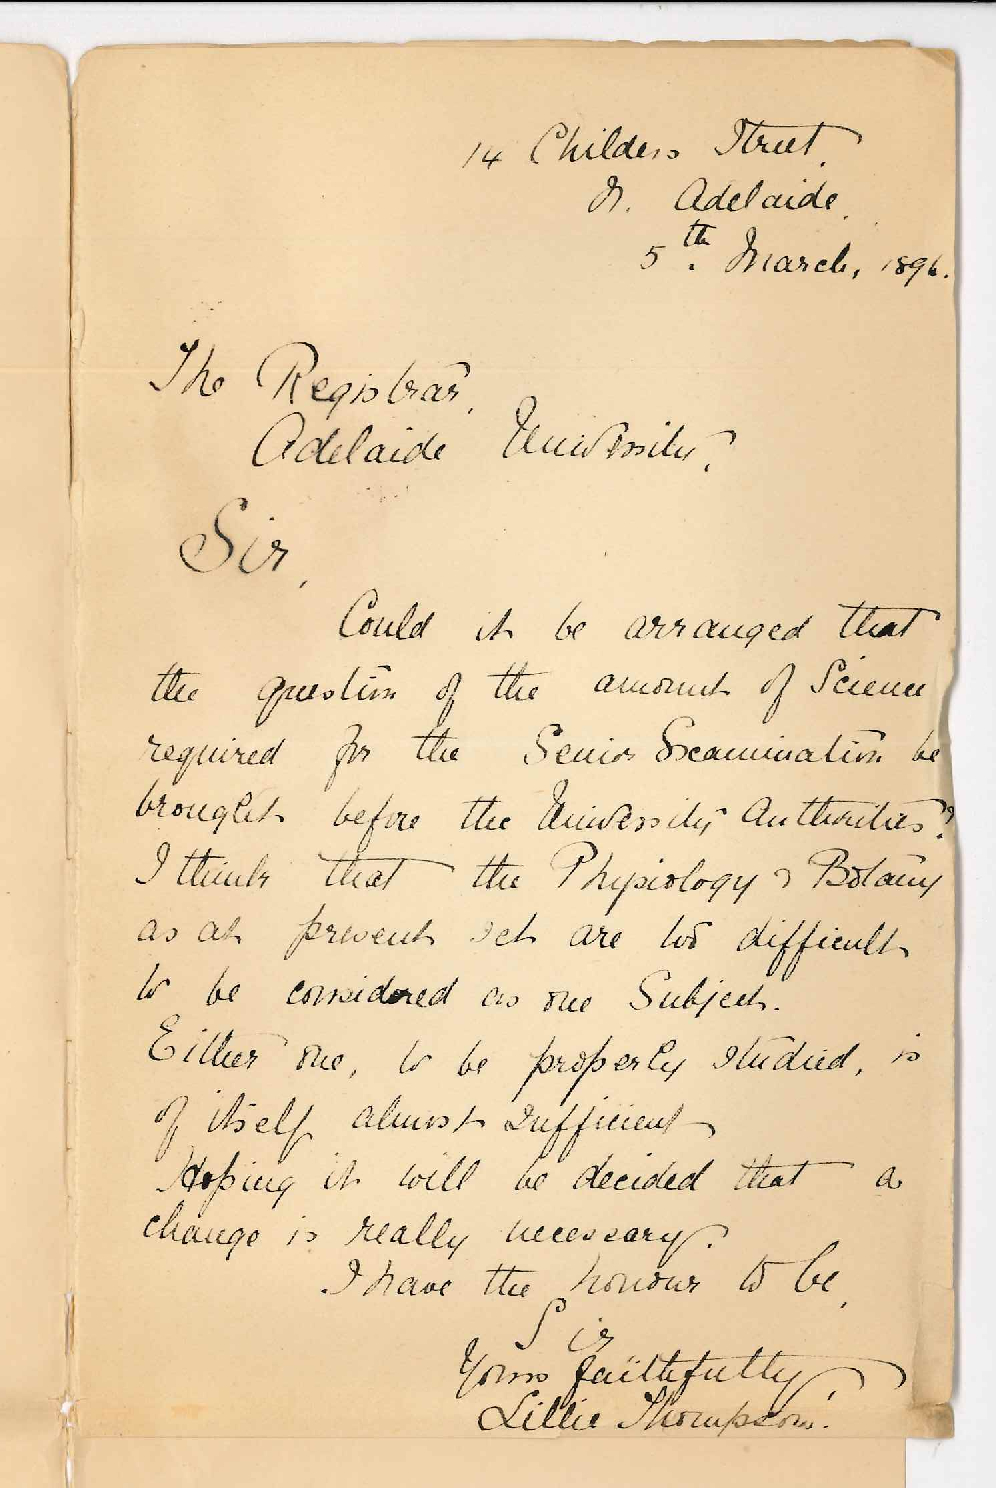 14 Childers Street,
N. Adelaide,
5th. March, 1896.
The Registrar,
Adelaide University.
Sir,
Could it be arranged that
the question of the amount of Science
required for the Senior Examination be
brought before the University Authorities?
I think that the Physiology & Botany
as at present set are too difficult
to be considered as one Subject.
Either one, to be properly studied, is
of itself almost sufficient
Hoping it will be decided that a
change is really necessary.
I have the honour to be,
Sir
Yours faithfully
Lillie Thompson.